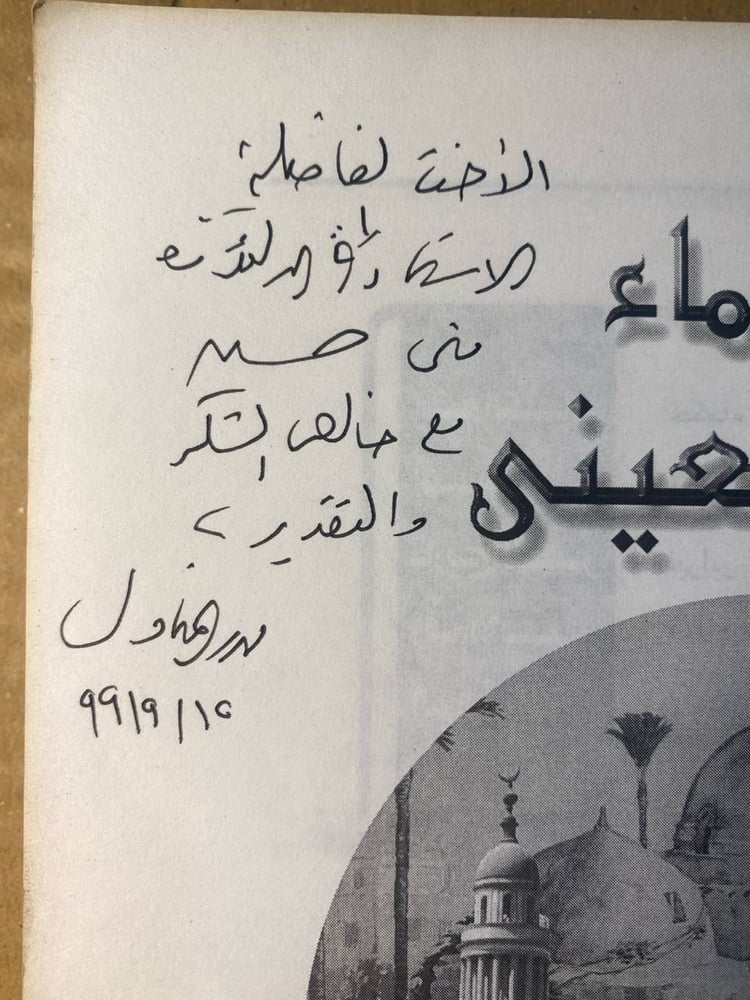 الأخت لفاضلة
الاستاذة
منى حسين
مع خالص الشكر
والتقدير ،
٩٩/٩/١٥
ماء
عينى